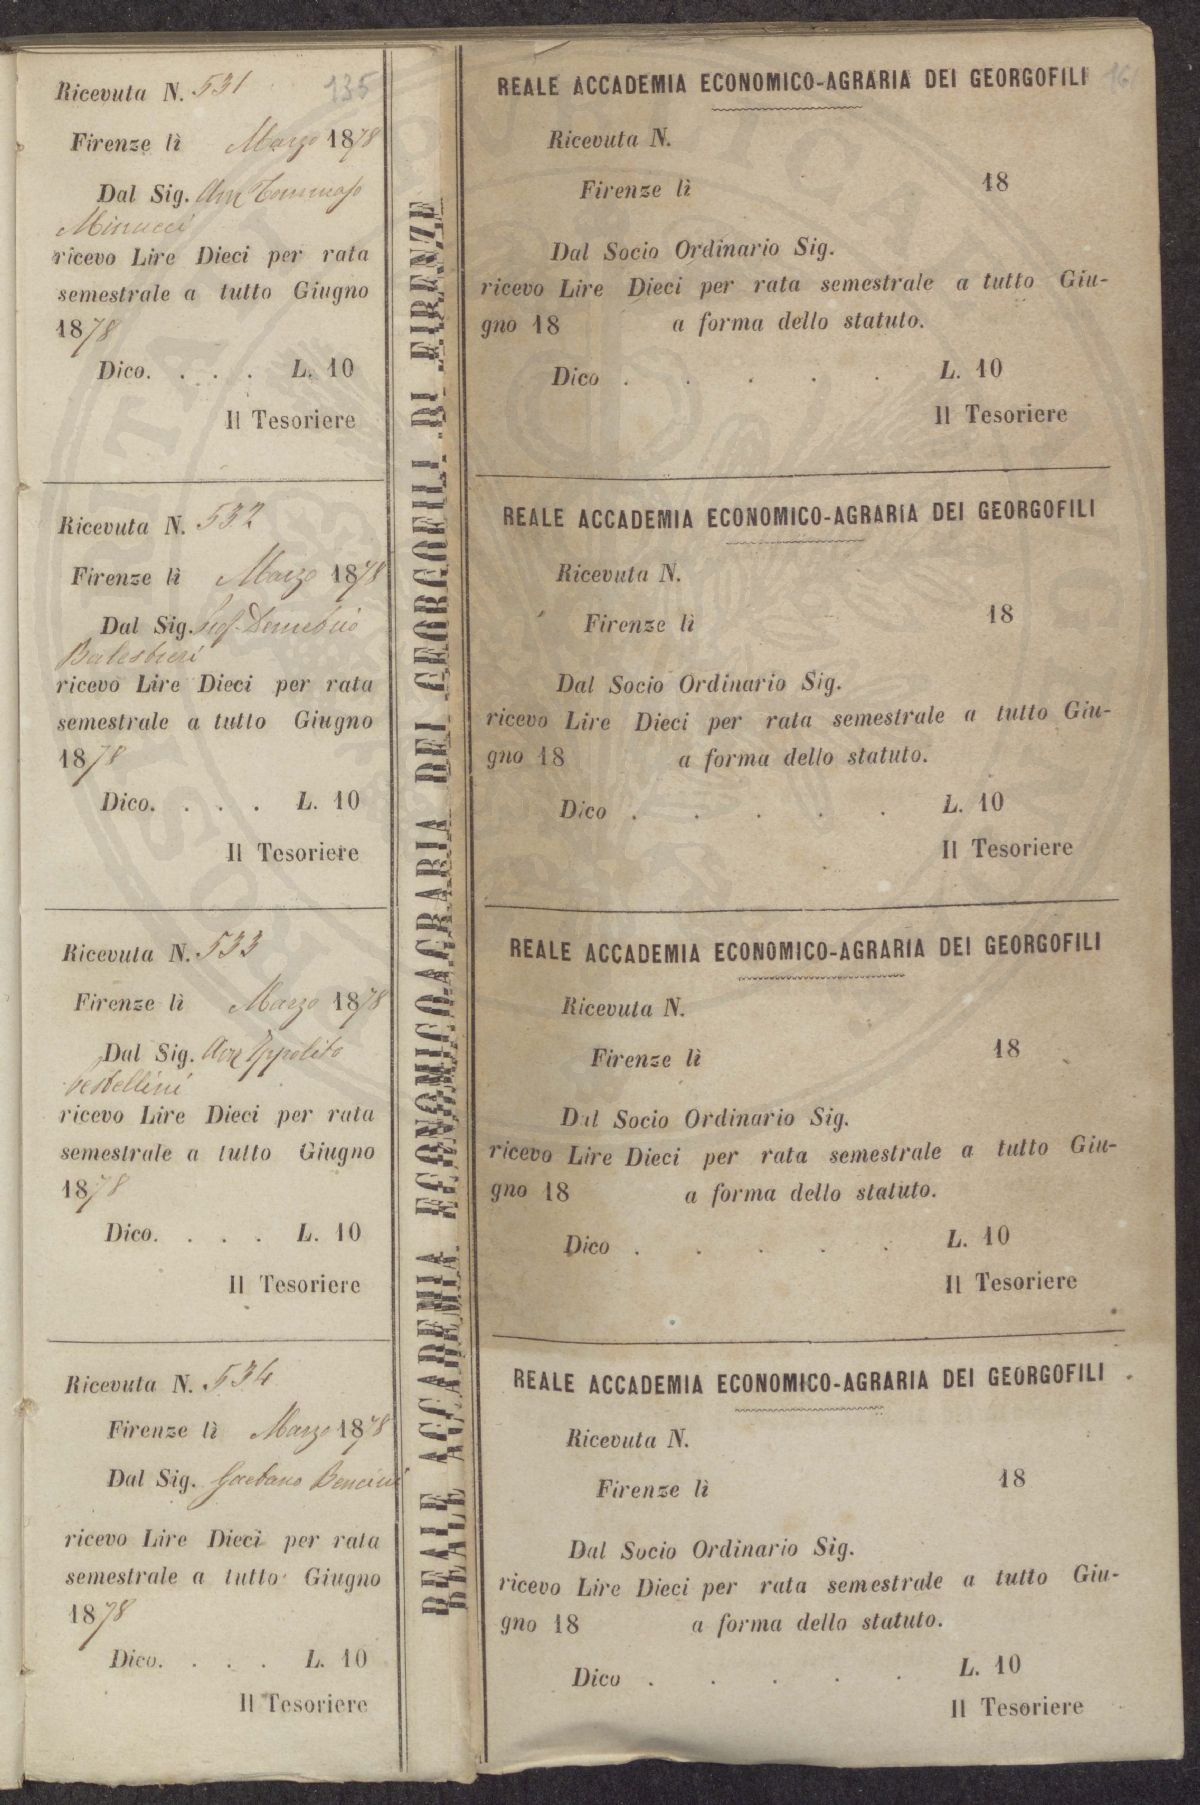 Ricevuta N. 531
135
Firenze lì Marzo 1878
Dal Sig. Tommaso
Minucci
ricevo Lire Dieci per rata
semestrale a tutto Giugno
1878
Dico. . . . L. 10
Il Tesoriere
Ricevuta N. 532
Firenze lì Marzo 1878
Dal Sig. Prof. Demetrio
Balestrieri
ricevo Lire Dieci per rata
semestrale a tutto Giugno
1878
Dico. . . . L. 10
Il Tesoriere
Ricevuta N. 533
Firenze lì Marzo 1878
Dal Sig. Avv Ippolito
Sestellini
ricevo Lire Dieci per rata
semestrale a tutto Giugno
1878
Dico. . . . L. 10
Il Tesoriere
Ricevuta N. 534
Firenze lì Marzo 1878
Dal Sig. Gaetano Bencini
ricevo Lire Dieci per rata
semestrale a tutto Giugno
1878
Dico. . . . L. 10
Il Tesoriere
REALE ACCADEMIA ECONOMICO AGRARIA DEI GEORGOFILI DI FIRENZE
REALE ACCADEMIA ECONOMICO-AGRARIA DEI GEORGOFILI
Ricevuta N.
Firenze lì 18
Dal Socio Ordinario Sig.
ricevo Lire Dieci per rata semestrale a tutto Giu-
gno 18 a forma dello statuto.
Dico . . . . . L. 10
Il Tesoriere
REALE ACCADEMIA ECONOMICO-AGRARIA DEI GEORGOFILI
Ricevuta N.
Firenze lì 18
Dal Socio Ordinario Sig.
ricevo Lire Dieci per rata semestrale a tutto Giu-
gno 18 a forma dello statuto.
Dico . . . . . L. 10
Il Tesoriere
REALE ACCADEMIA ECONOMICO-AGRARIA DEI GEORGOFILI
Ricevuta N.
Firenze lì 18
Dal Socio Ordinario Sig.
ricevo Lire Dieci per rata semestrale a tutto Giu-
gno 18 a forma dello statuto.
Dico . . . . . L. 10
Il Tesoriere
REALE ACCADEMIA ECONOMICO-AGRARIA DEI GEORGOFILI
Ricevuta N.
Firenze lì 18
Dal Socio Ordinario Sig.
ricevo Lire Dieci per rata semestrale a tutto Giu-
gno 18 a forma dello statuto.
Dico . . . . . L. 10
Il Tesoriere